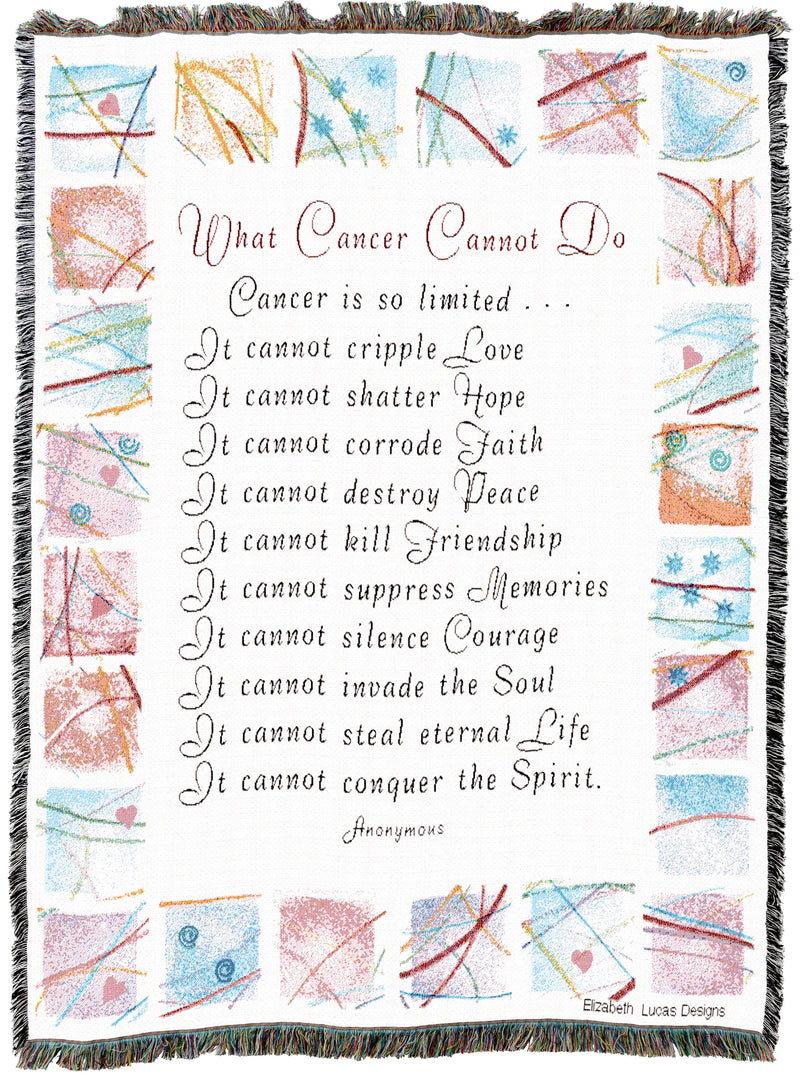 What Cancer Cannot Do
Cancer is so limited . . .
It cannot cripple Love
It cannot shatter Hope
It cannot corrode Faith
It cannot destroy Peace
It cannot kill Friendship
It cannot suppress Memories
It cannot silence Courage
It cannot invade the Soul
It cannot steal eternal Life
It cannot conquer the Spirit.
Anonymous
Elizabeth Lucas Designs